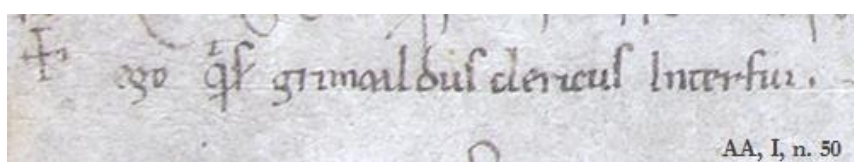 + ego qi̅s grimaildus clericus Interfui.
AA, I, n. 50